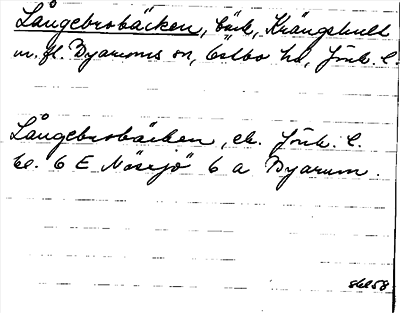 Långebrobäcken, bäck, Krängshult
m. fl. Byarums sn, Östbo hd, Jönk. l.
Långebrobäcken, ek. Jönk. l.
bl. 6 E Nässjö 6 a Byarum.